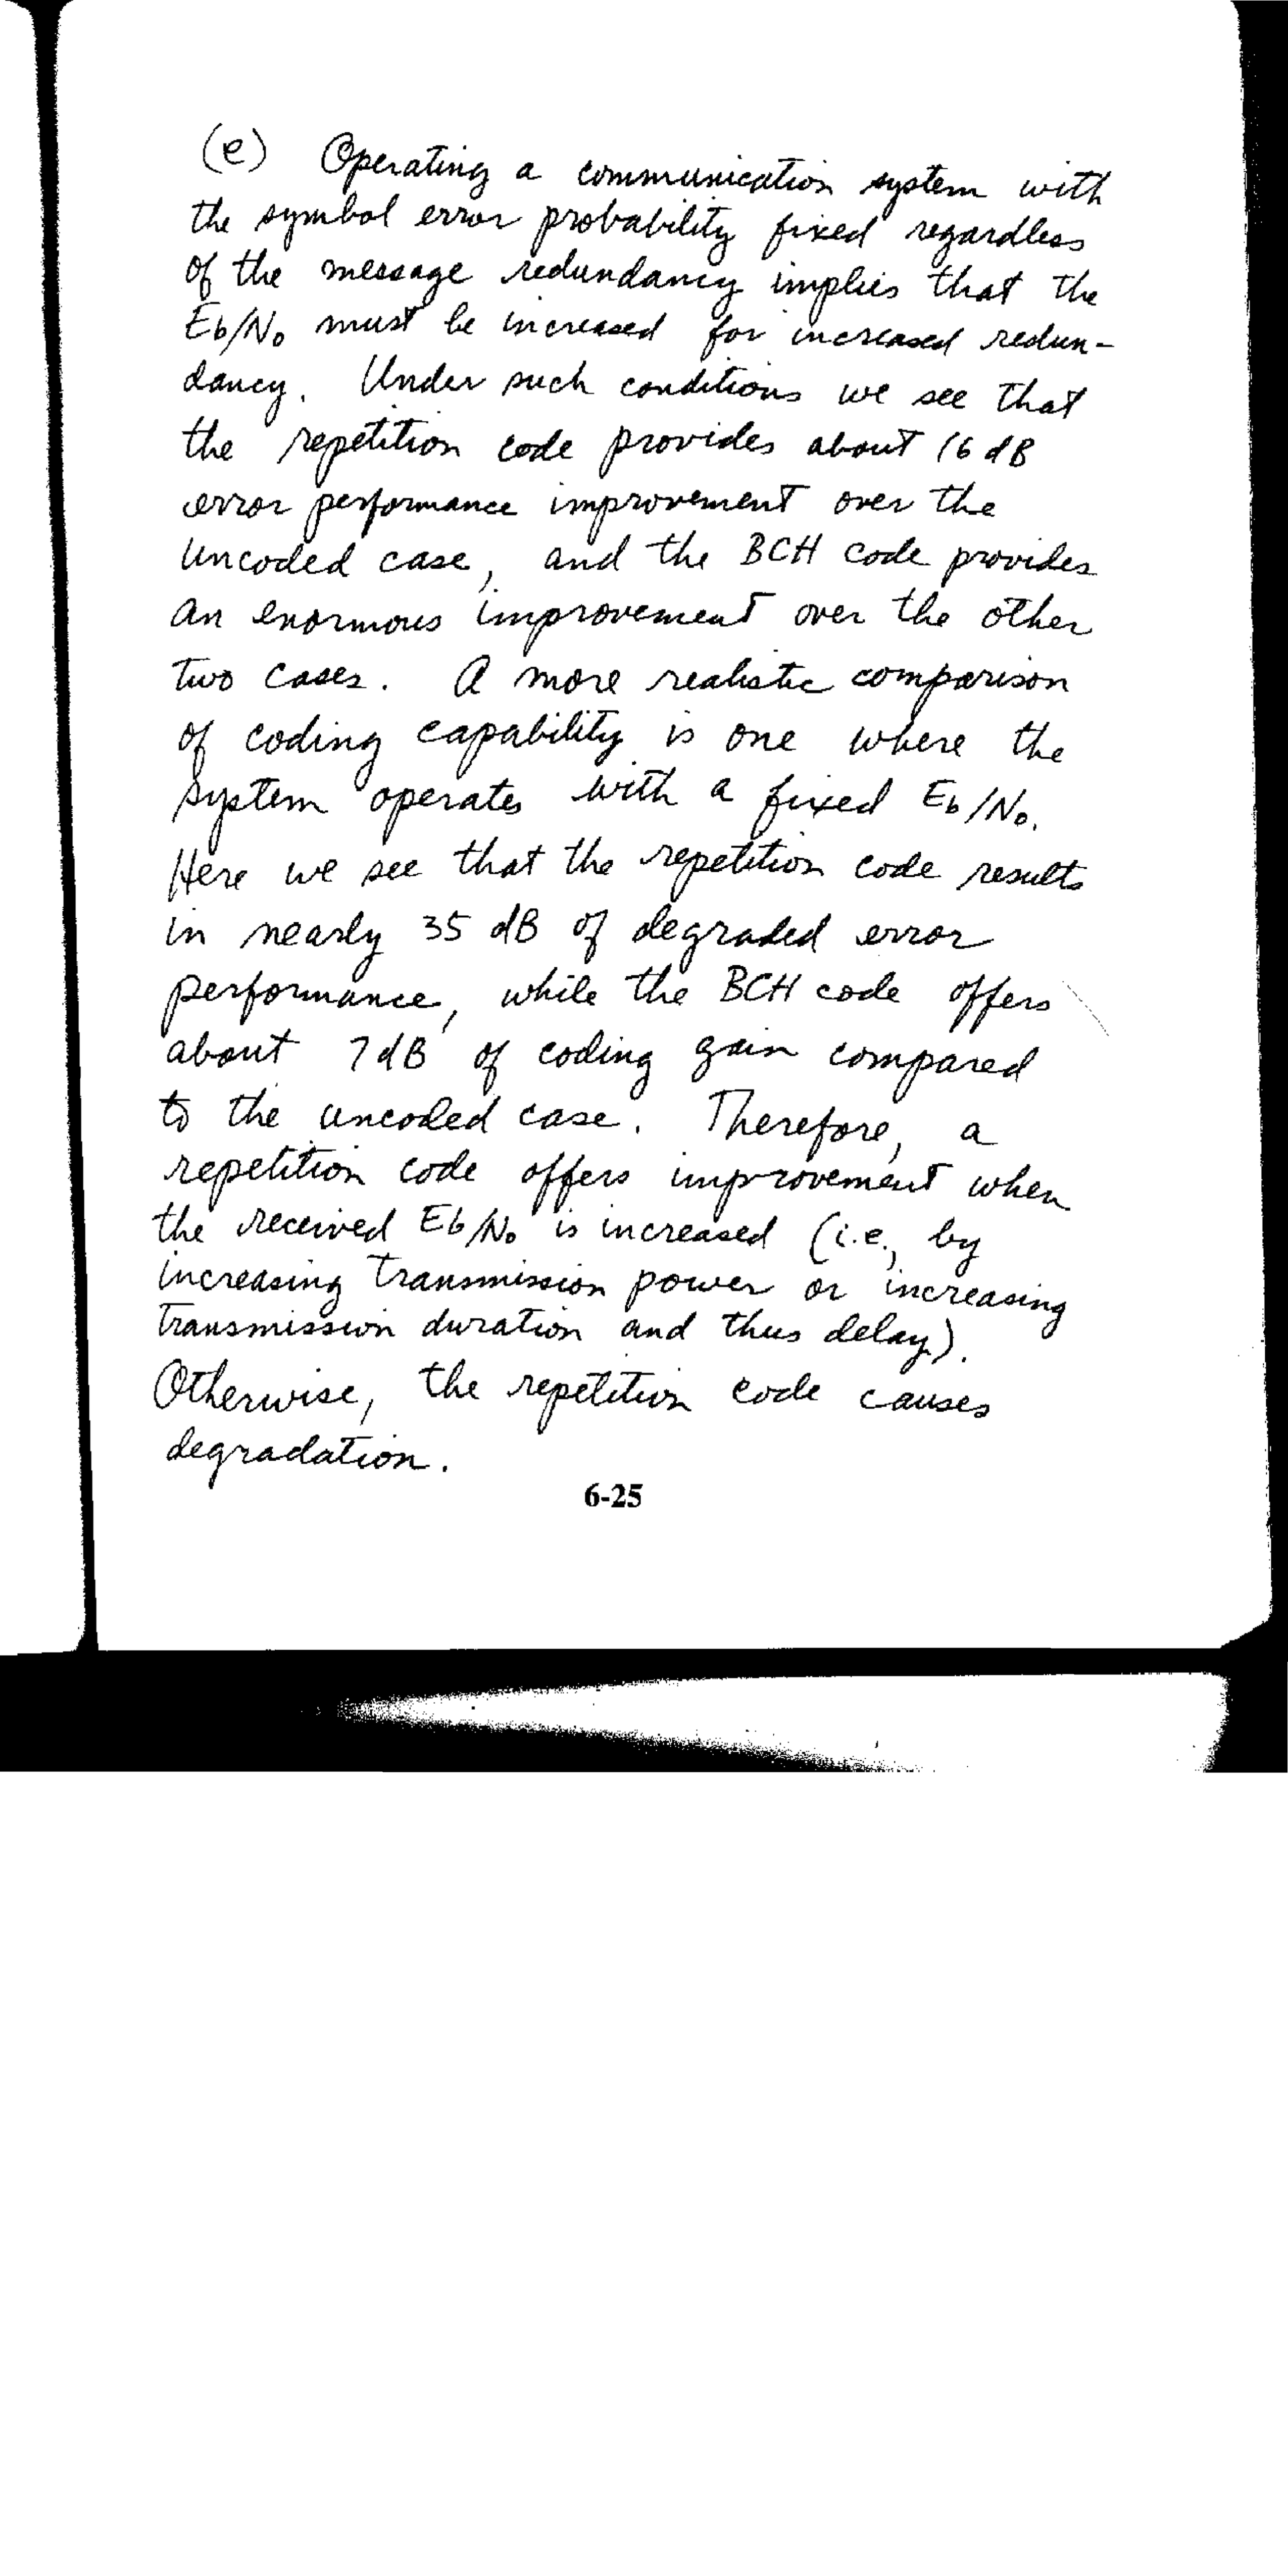 (e) Operating a communication system with
the symbol error probability fixed regardless
of the message redundancy implies that the
Eb/No must be increased for increased redun-
dancy. Under such conditions we see that
the repetition code provides about 16 dB
error performance improvement over the
uncoded case, and the BCH code provides
an enormous improvement over the other
two cases. A more realistic comparison
of coding capability is one where the
system operates with a fixed Eb/No.
Here we see that the repetition code results
in nearly 35 dB of degraded error
performance, while the BCH code offers
about 7 dB of coding gain compared
to the uncoded case. Therefore, a
repetition code offers improvement when
the received Eb/No is increased (i.e., by
increasing transmission power or increasing
transmission duration and thus delay).
Otherwise, the repetition code causes
degradation.
6-25